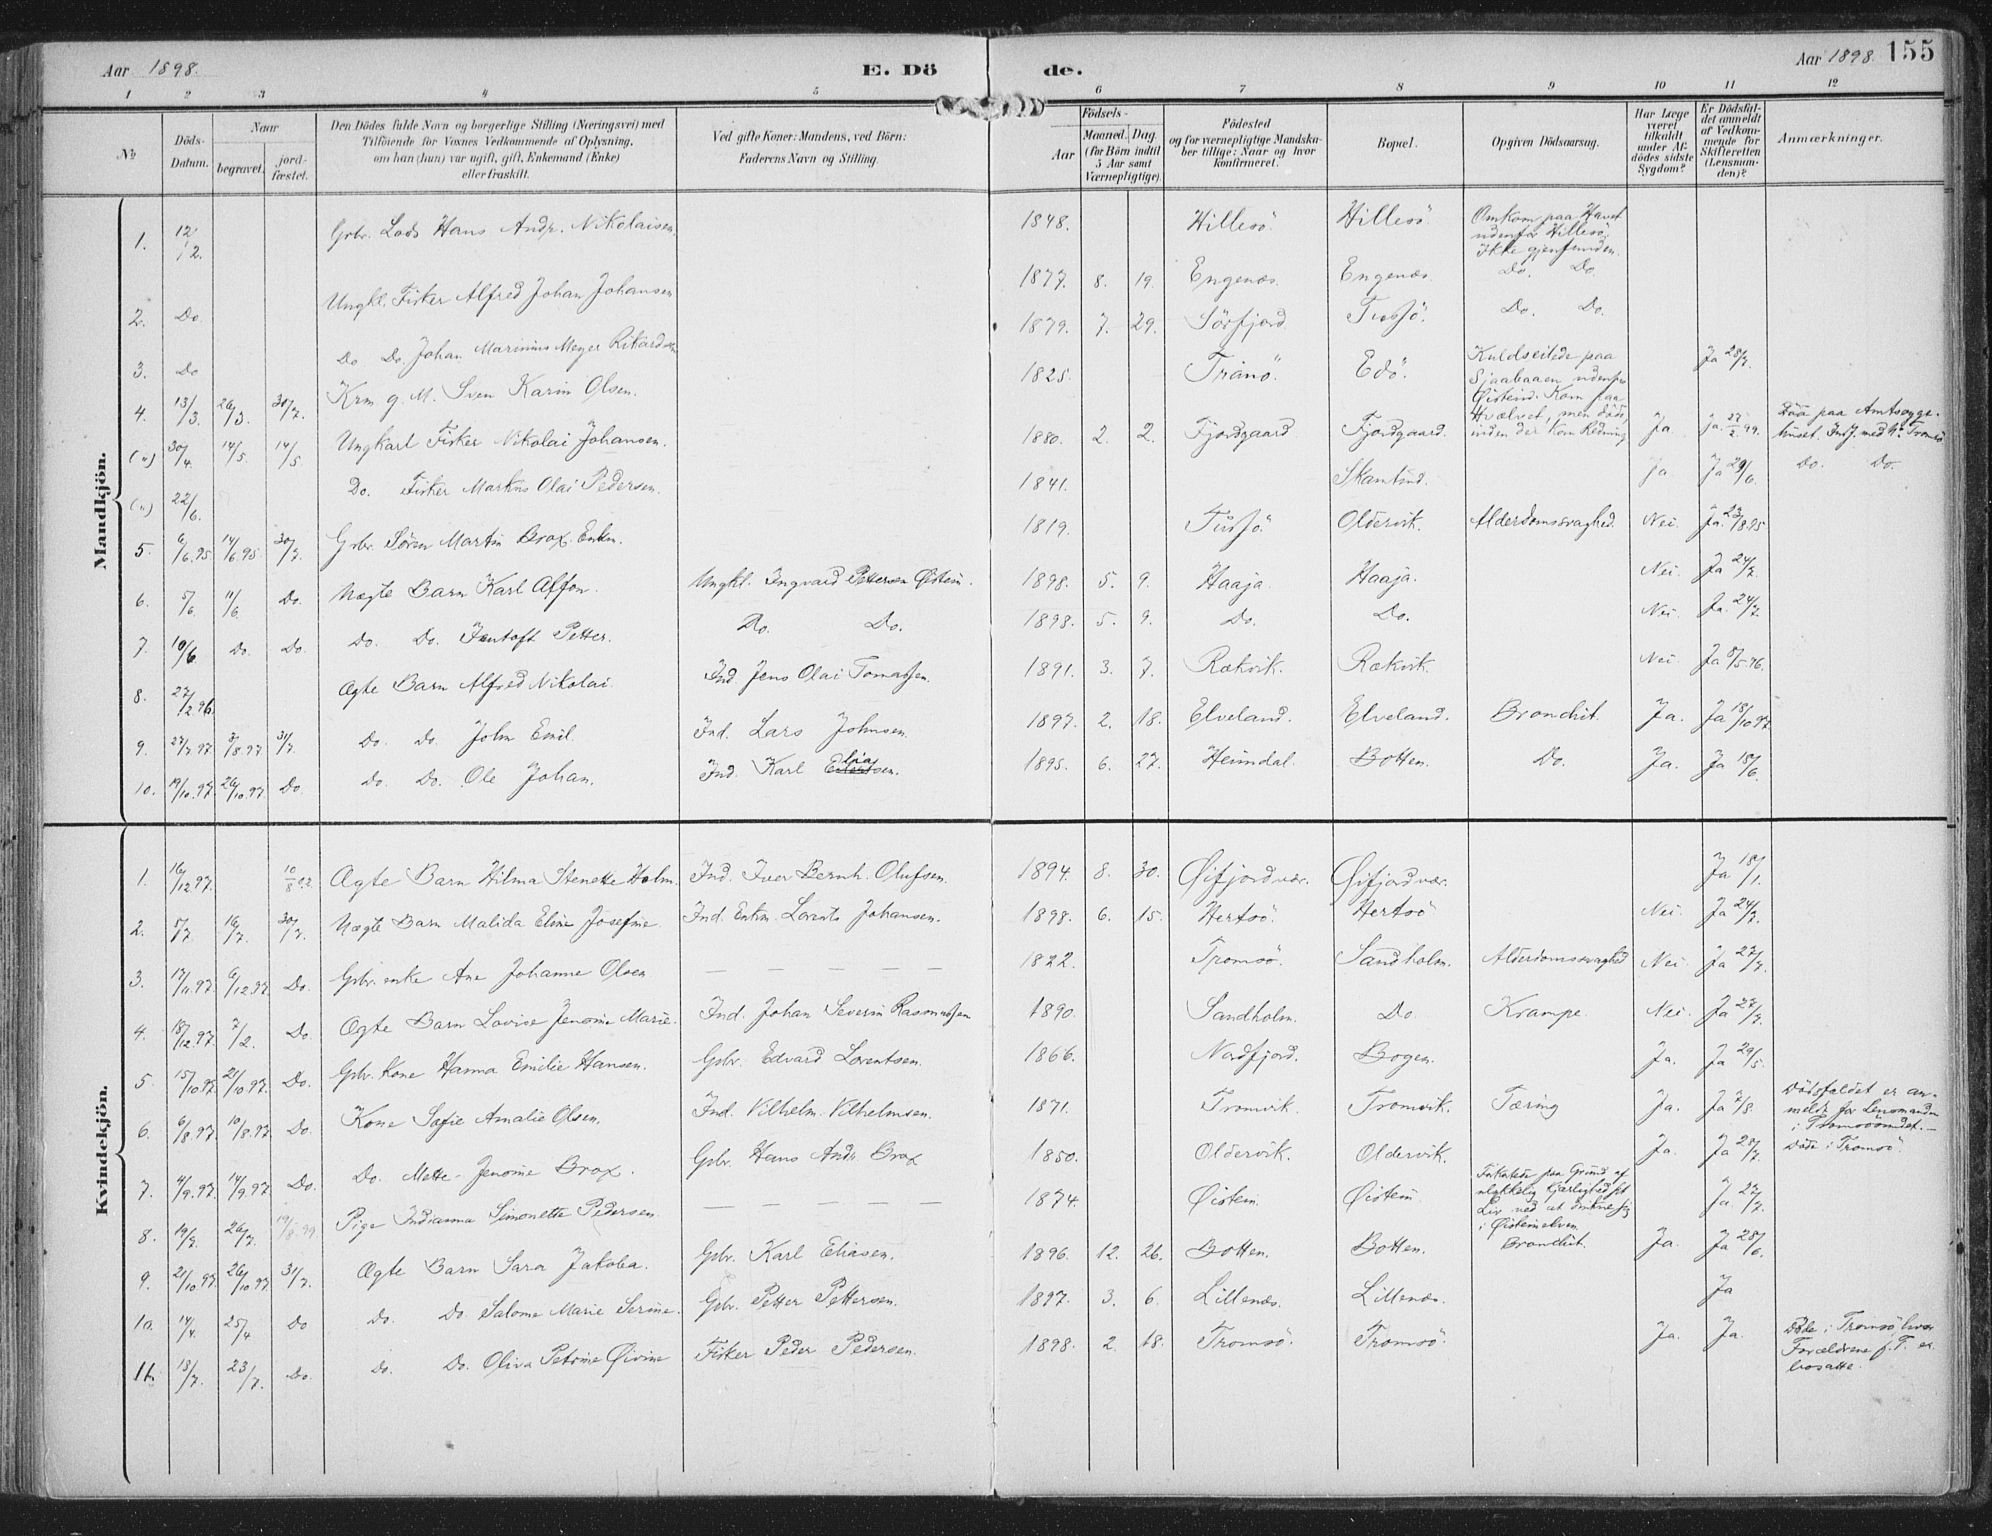 Aar 1898.
E. Dö de.
Aar 1898. 155
1 2 3 4 5 6 7 8 9 10 11 12
№
Döds-Datum.
Naar
begravet.
jord-fæstet.
Den Dödes fulde Navn og borgerlige Stilling (Næringsvei) med
Tilföiende for Voxnes Vedkommende af Oplysning,
om han (hun) var ugift, gift, Enkemand (Enke)
eller fraskilt.
Ved gifte Koner: Mandens, ved Börn:
Faderens Navn og Stilling.
Födsels-
Aar
Maaned. Dag.
(for Börn indtil
5 Aar samt
Værnepligtige).
Födested
og for værnepligtige Mandska-
ber tillige: Naar og hvor
konfirmeret.
Bopæl.
Opgiven Dödsaarsag.
Har Læge
været
tilkaldt
under Af-
dödes sidste
Sygdom?
Er Dödsfal-
det anmeldt
af Vedkom-
mende for
Skifteretten
(Lensman-
den)?
Anmærkninger.
Mandkjön.
1. 12/2. Grbr. Lods Hans Andr. Nikolaisen. 1848. Hillesö. Hillesö. Omkom paa Havet udenfor Hillesö. Ikke gjenfunden.
2. Do. Ungkl. Fisker Alfred Johan Johansen 1877. 8. 19. Engenæs. Engenæs. Do. Do.
3. Do Do Do. Johan Marinius Meyer Rikardsen 1879. 7. 29. Sörfjord Tussö. Do. Do.
4. 13/3. 26/3. 30/7. Krm g. M. Sven Karin Olsen. 1825. Tranö. Edö. Kuldseilede paa Sjaabaaen udenfor Öisteind. Kom paa Hvælvet, men döde, inden der kom Redning Ja 28/7.
(") 30/4. 14/5. 14/5 Ungkarl Fisker Nikolai Johansen. 1880. 2. 2. Fjordgaard Fjordgaard. Ja ja. 27/2 99. Död paa Amtssyge-huset. Indf. med № Tromsö
(") 22/6. Do. Fisker Markus Olai Pedersen. 1841. Skantind. Ja Ja 29/6. Do. Do.
5. 6/6.95 14/6.95. 30/7. Grbr. Sören Martin Brox. Enkm. 1819. Tussö. Oldervik. Alderdomssvaghed. Nei. Ja. 23/8.95
6. 5/6. 11/6 Do. Uægte Barn Karl Alfon. Ungkl. Ingvard Pettersen Öistein. 1898. 5. 9. Haaja. Haaja. Nei. Ja 24/7.
7. 10/6 Do. Do. Do. Do. Jentoft Petter. Do. Do. 1898. 5. 9. Do. Do. Nei Ja. 24/7.
8. 27/2.96. Ægte Barn Alfred Nikolai. Ind. Jens Olai Tomassen. 1891. 3. 7. Rækvik. Rækvik. Nei Ja 8/5.96.
9. 27/7.97. 3/8.97 31/7. Do. Do. John Emil Ind. Lars Johnsen. 1897. 2. 18. Elveland. Elveland. Bronchit. Ja. Ja 18/10.97
10. 19/10.97. 26/10.97 Do. Do. Do. Ole Johan. Ind. Karl Eliasen. 1895. 6. 27. Heimdal. Botten. Do. Ja. Ja 18/6.
Kvindekjön.
1. 16/12.97. 10/8 02. Ægte Barn Hilma Stenette Holm. Ind. Iver Bernh. Olufsen. 1894. 8. 30. Öifjordvær. Öifjordvær. Ja 18/1.
2. 5/7. 16/7. 30/7. Uægte Barn Malida Eline Josefine Ind. Enkm. Lorents Johansen. 1898. 6. 15. Hersö. Hersö Nei. Ja 24/7.
3. 17/11.97. 6/12.97. Do. Grbr. enke Ane Johanne Olsen — — — — — 1822. Tromsö. Sandholm. Alderdomssvaghed Nei. Ja 27/7.
4. 18/12.97. 7/2. Do. Ægte Barn Lovise Jensine Marie. Ind. Johan Severin Rasmussen 1890. Sandholm. Do. Krampe. Nei. Ja 27/7.
5. 15/10.97. 21/10.97. Do. Grbr. Kone Hanna Emilie Hansen. Grbr. Edvard Lorentsen. 1866. Nordfjord. Bogen. Ja. Ja 29/5.
6. 6/8.97. 10/8.97. Do. Kone Sofie Amalie Olsen. Ind. Vilhelm Vilhelmsen. 1871. Tromvik. Tromvik. Tæring Ja. Ja 7/8. Dödsfaldet er an-meldt for Lensmanden i Tromsösundet.—
7. 4/9.97. 14/9.97. Do. Do. Mette Jensine Brox. Grbr. Hans Andr. Brox 1850. Oldervik. Oldervik. Ja. Ja 28/7. Döde i Tromsö.
8. 19/7. 26/7. 19/8.99. Pige Indianna Simonette Pedersen. — — — — 1874. Öistein. Öistein. paa Grund af ulykkelig Kjærlighed sit Liv ved at drukne sig i Öisteinelven. Ja. 27/7.
9. 21/10.97. 26/10.97 31/7. Ægte Barn Sara Jakoba. Grbr. Karl Eliasen. 1896. 12. 26. Botten. Botten. Bronchit. Ja. Ja 28/6.
10. 14/4. 25/4 Do Do. Do. Salome Marie Serine. Grbr. Petter Pettersen. 1897. 3. 6. Lillenæs. Lillenæs. Ja
11. 18/7. 23/7. Do. Do. Do. Oliva Petrine Öivine Fisker Peder Pedersen. 1898. 2. 18. Tromsö. Tromsö. Ja. Ja. Döde i Tromsö hvor Forældrene f. T. er bosatte.